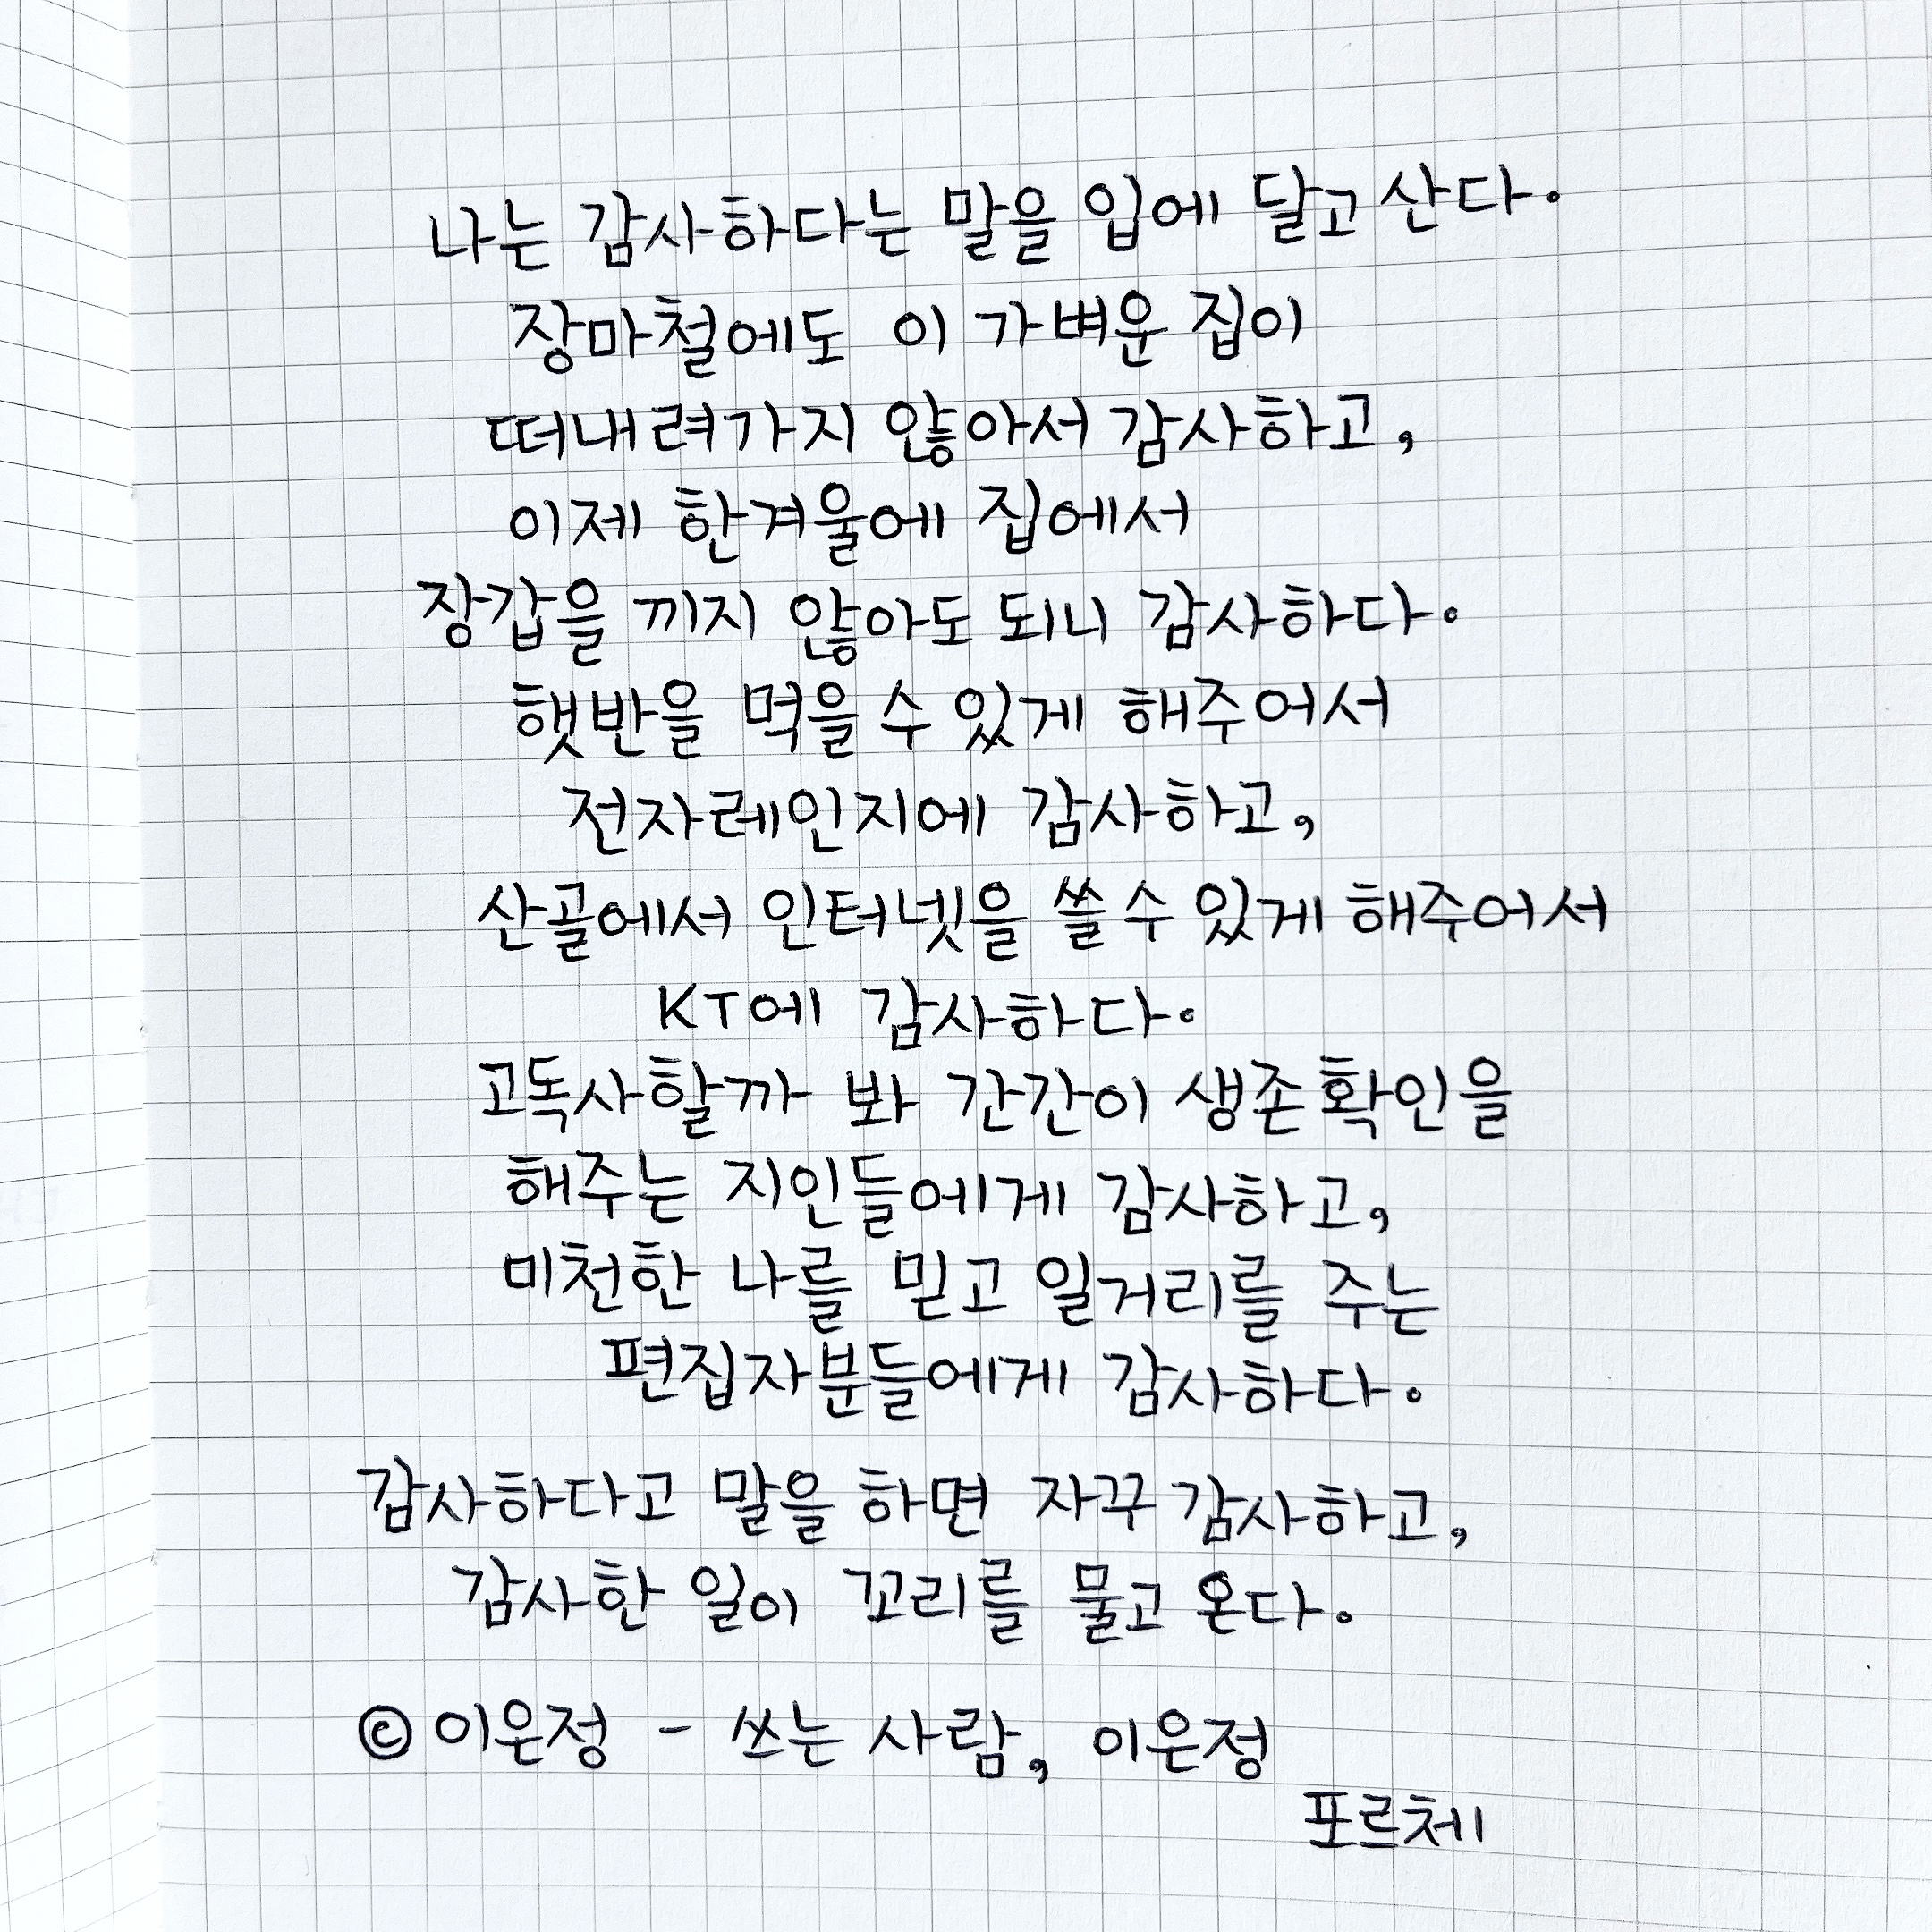 나는 감사하다는 말을 입에 달고 산다.
장마철에도 이 가벼운 집이
떠내려가지 않아서 감사하고,
이제 한겨울에 집에서
장갑을 끼지 않아도 되니 감사하다.
햇반을 먹을 수 있게 해주어서
전자레인지에 감사하고,
산골에서 인터넷을 쓸 수 있게 해주어서
KT에 감사하다.
고독사할까 봐 간간이 생존확인을
해주는 지인들에게 감사하고,
미천한 나를 믿고 일거리를 주는
편집자분들에게 감사하다.
감사하다고 말을 하면 자꾸 감사하고,
감사한 일이 꼬리를 물고 온다.
© 이은정 - 쓰는 사람, 이은정
포르체